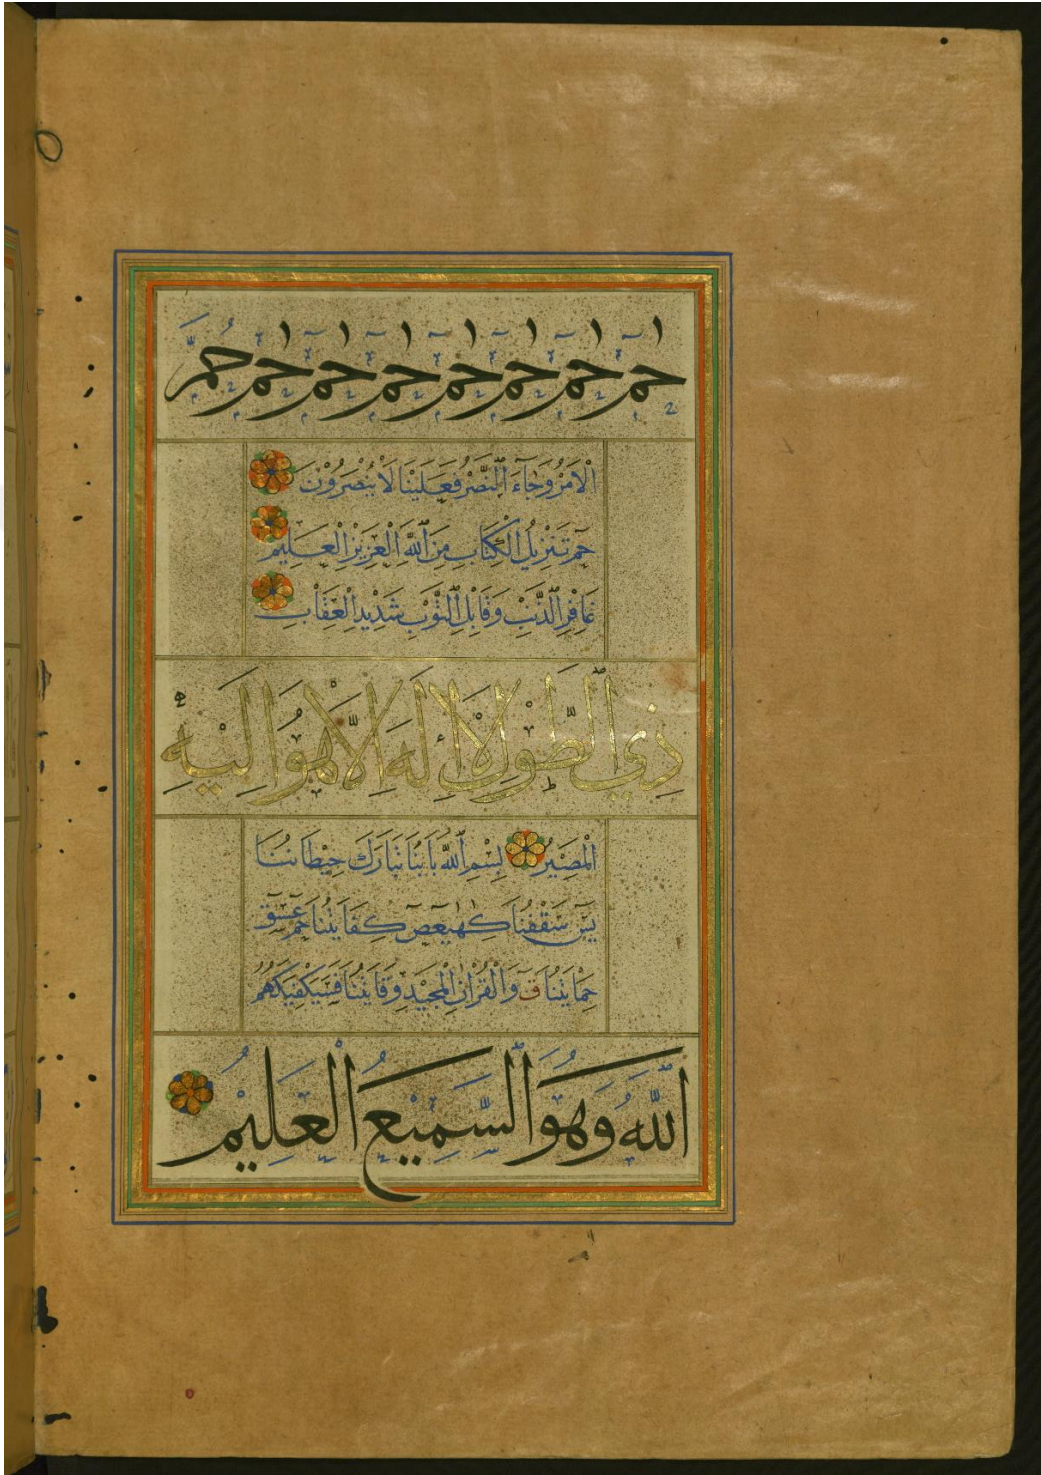 حم حم حم حم حم حم حم حُمَّ
الْاَمْرُ وَجَآءَ النَّصْرُ فَعَلَيْنَا لَا يُنْصَرُوْنَ
حٰمٓ تَنْزِيْلُ الْكِتَابِ مِنَ اللّٰهِ الْعَزِيْزِ الْعَلِيْمِ
غَافِرِ الذَّنْبِ وَقَابِلِ التَّوْبِ شَدِيْدِ الْعِقَابِ
ذِي الطَّوْلِ لَا اِلٰهَ اِلَّا هُوَ اِلَيْهِ
الْمَصِيْرُ بِسْمِ اللّٰهِ بَابُنَا تَبَارَكَ حِيْطَانُنَا
يٰسٓ سَقْفُنَا كٓهٰيٰعٓصٓ كِفَايَتُنَا حٰمٓ عٓسٓقٓ
حِمَايَتُنَا قٓ وَالْقُرْاٰنِ الْمَجِيْدِ وِقَايَتُنَا فَسَيَكْفِيْكَهُمُ
اللّٰهُ وَهُوَ السَّمِيْعُ الْعَلِيْمُ